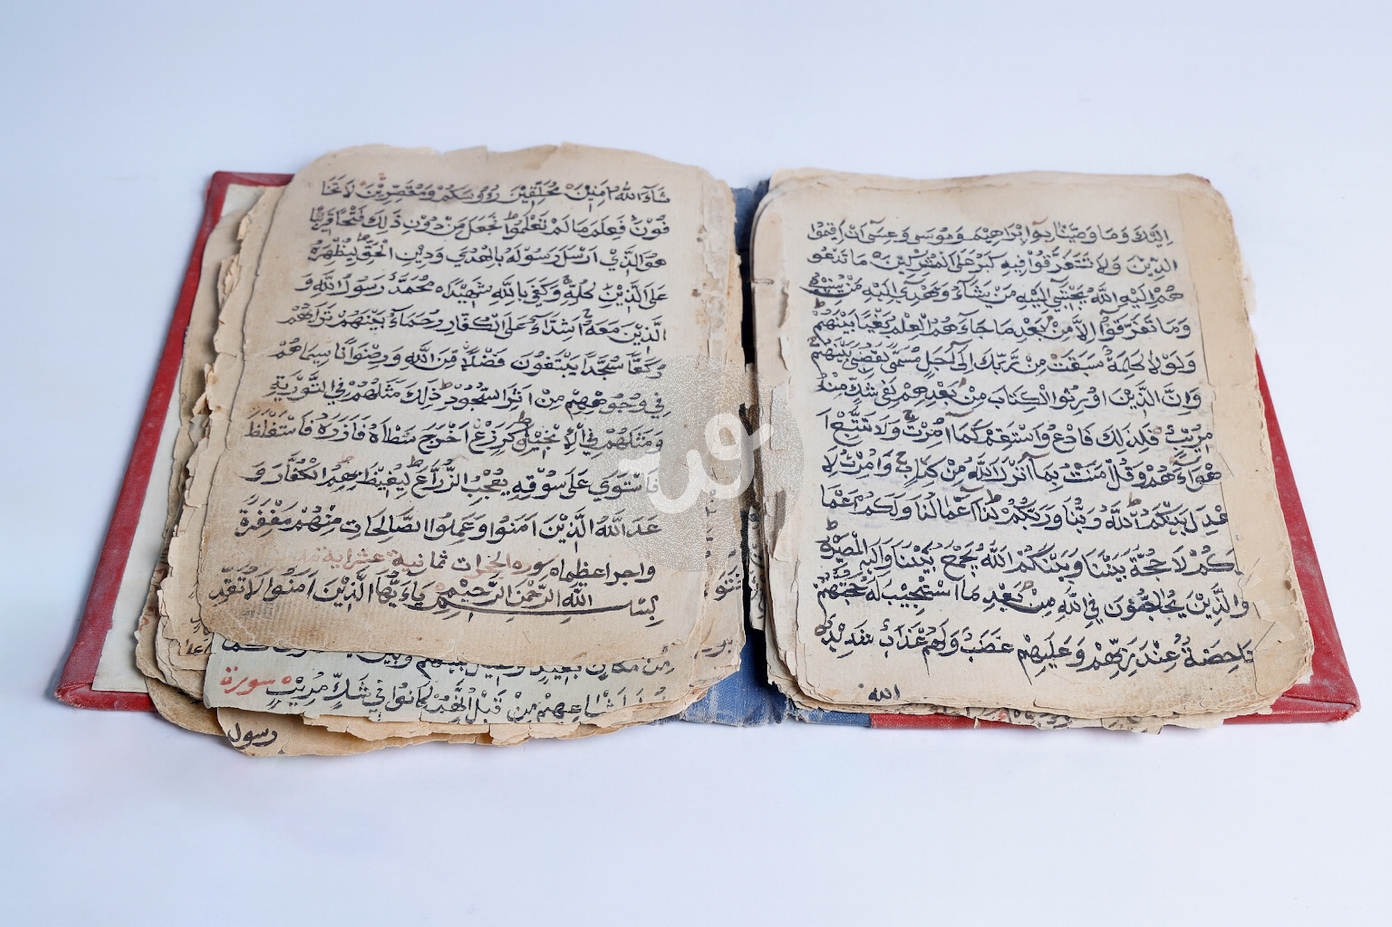 اليك وما وصينا به ابراهيم وموسى وعيسى ان اقيموا
الدين ولا تتفرقوا فيه كبر على المشركين ما تدعو
هم اليه الله يجتبي اليه من يشاء ويهدي اليه من ينيب
وما تفرقوا الا من بعد ما جاءهم العلم بغيا بينهم
ولولا كلمة سبقت من ربك الى اجل مسمى لقضي بينهم
وان الذين اورثوا الكتاب من بعدهم لفي شك منه
مريب فلذلك فادع واستقم كما امرت ولا تتبع ا
هواءهم وقل امنت بما انزل الله من كتاب وامرت لا
عدل بينكم الله ربنا وربكم لنا اعمالنا ولكم اعما
لكم لا حجة بيننا وبينكم الله يجمع بيننا واليه المصير
والذين يحاجون في الله من بعد ما استجيب له حجتهم
داحضة عند ربهم وعليهم غضب ولهم عذاب شديد
الله
شاء الله امنين محلقين رؤوسكم ومقصرين لا تخا
فون فعلم ما لم تعلموا فجعل من دون ذلك فتحا قريبا
هو الذي ارسل رسوله بالهدى ودين الحق ليظهره
على الدين كله وكفى بالله شهيدا محمد رسول الله و
الذين معه اشداء على الكفار رحماء بينهم تراهم
ركعا سجدا يبتغون فضلا من الله ورضوانا سيماهم
في وجوههم من اثر السجود ذلك مثلهم في التورية
ومثلهم في الانجيل كزرع اخرج شطاه فازره فاستغلظ
فاستوى على سوقه يعجب الزراع ليغيظ بهم الكفار و
عد الله الذين امنوا وعملوا الصالحات منهم مغفرة
واجرا عظيما سورة الحجرات ثمانية عشر اية
بسم الله الرحمن الرحيم يا ايها الذين امنوا لا تقد
من مكان بعيد وحيل بينهم
باشياعهم من قبل انهم كانوا في شك مريب سورة
رسول